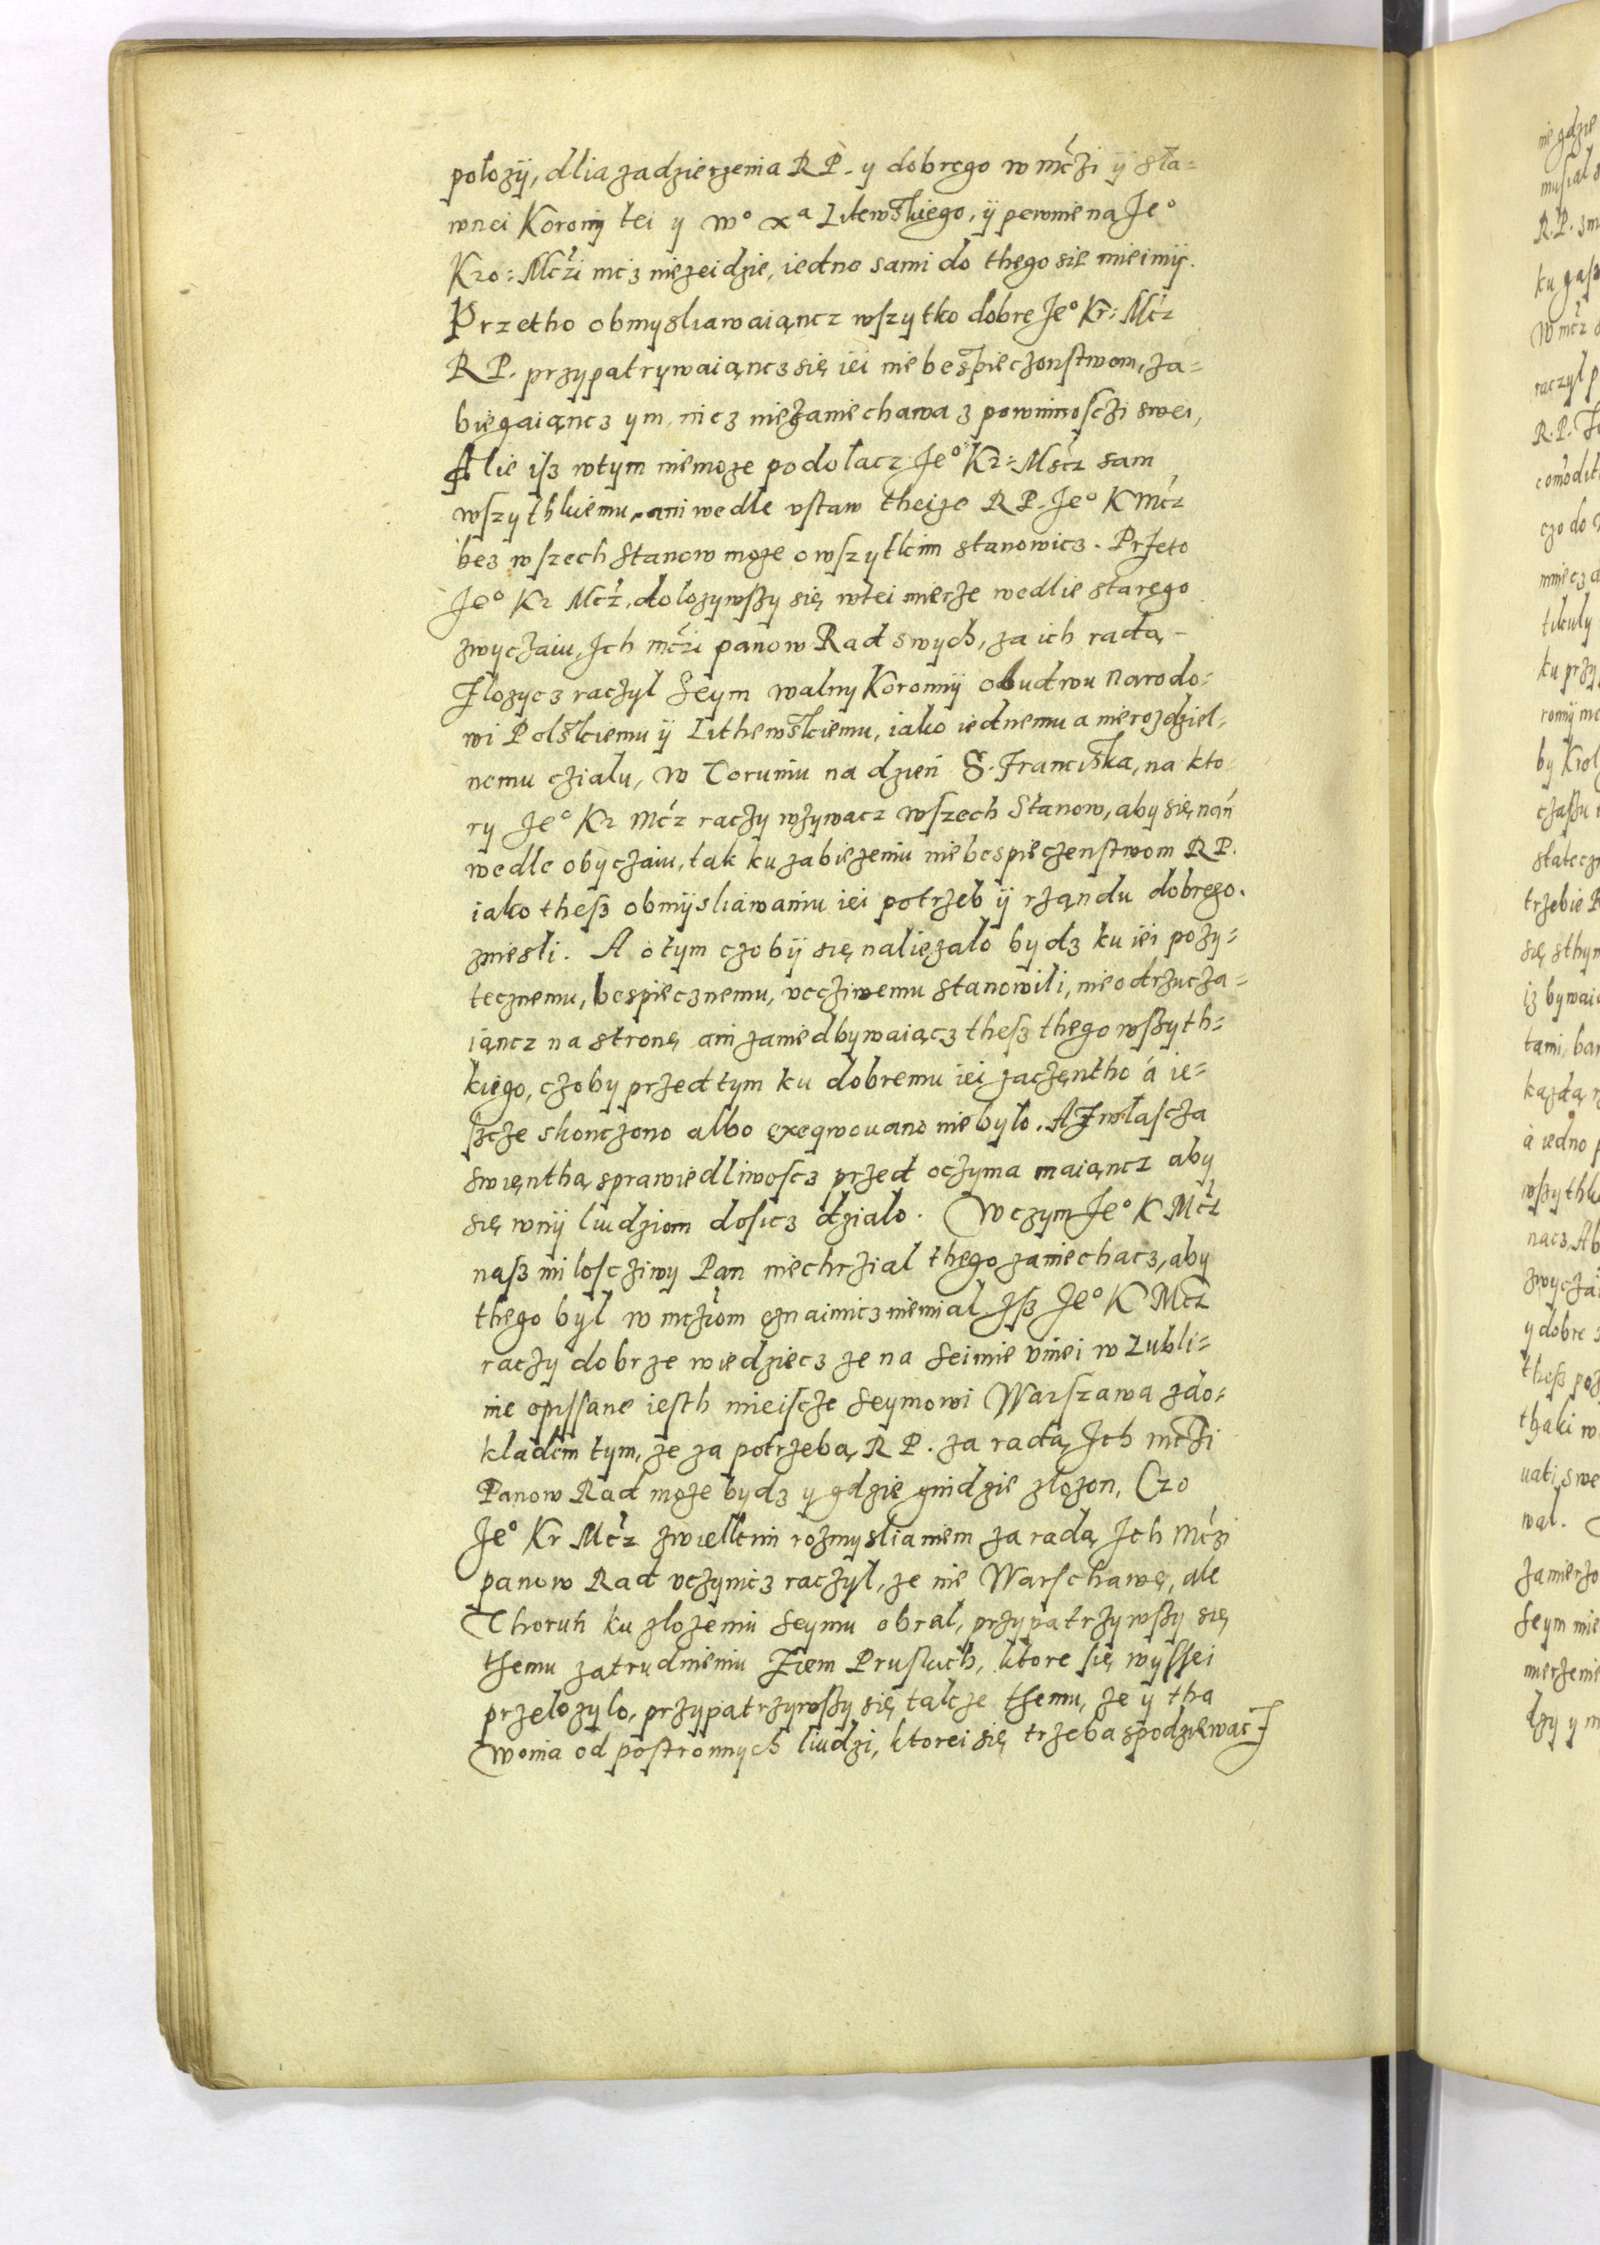 położÿ, dlia zadzierzenia R P. y dobrego w mczi ÿ sła-
wnei Koronÿ tei y Wo xa Litewskiego, ÿ pewnie na Jeo
Kro: Mczi nic3 nie zeidzie, iedno sami do thego się mieimÿ.
Przetho obmysliawaiąncz wszytko dobre Jeo Kr: Mcz
R P. przypatrywaiąnc3 się iei niebespieczonstwom, za-
biegaiąnc3 ym, nic3 niezaniechawa 3 powinnosczi swei,
Alie is3 wtym niemoze podołacz Jeo Kr: Mscz sam
wszythkiemu, ani wedle ustaw theize R P. Jeo K Mcz
bes wszech Stanow moze o wszytkim stanowic3. Przeto
Jeo Kr Mcz, dolozywszy się wtei mierze wedlie starego
zwyczaiu, Ich mczi panow Rad swych, za ich radą
złozyc3 raczył Seym walny Koronnÿ obudwu Narodo-
wi Polskiemu ÿ Lithewskiemu, iako iednemu a nierozdziel-
nemu cziału, w Toruniu na dzień S. Franciska, na kto-
ry Jeo Kr Mcz raczy wzywacz wszech Stanow, aby się nań
wedle obyczaiu, tak ku zabiezeniu niebespieczenstwom R P.
iako thes3 obmÿsliawaniu iei potrzeb ÿ rząndu dobrego.
zniesli. A o tym czobÿ się naliezało byd3 ku iei pozy-
tecznemu, bespiecznemu, uccziwemu stanowili, nieodrzucza-
iąncz na stronę ani zaniedbywaiąc3 thes3 thego wszyth-
kiego, czoby przed tym ku dobremu iei zaczęntho á ie-
szcze skonczono albo exeqwowano nie było. A zwłascza
swięnthą sprawiedliwosc3 przed oczyma maiąncz aby
się wnÿ liudziom dosic3 działo. W czym Jeo K Mcz
nas3 milosciwy Pan niechrział thego zaniechac3, aby
thego był w mcziom oznaimic3 niemiał is3 Jeo K Mcz
raczy dobrze wiedziec3 ze na Seimie uniei w Lubli-
nie opissane iesth mieiscze Seymowi Warszawa zdo-
kladem tym, ze za potrzebą R P. za radą Ich mczi
Panow Rad moze byd3 y gdzie gindzie złozon, Czo
Jeo Kr Mcz zwielkim rozmyslianiem za radą Ich Mczi
panow Rad uczynic3 raczył, ze nie Warschawę, ale
Thoruń ku złozeniu Seymu obrał, przypatrzywszy się
themu zatrudnieniu Ziem Pruskich, ktore się wyssei
przełozyło, przypatrzywszy się takze themu, ze ÿ tha
wonia od postronnych liudzi, ktorei się trzeba spodziewac3